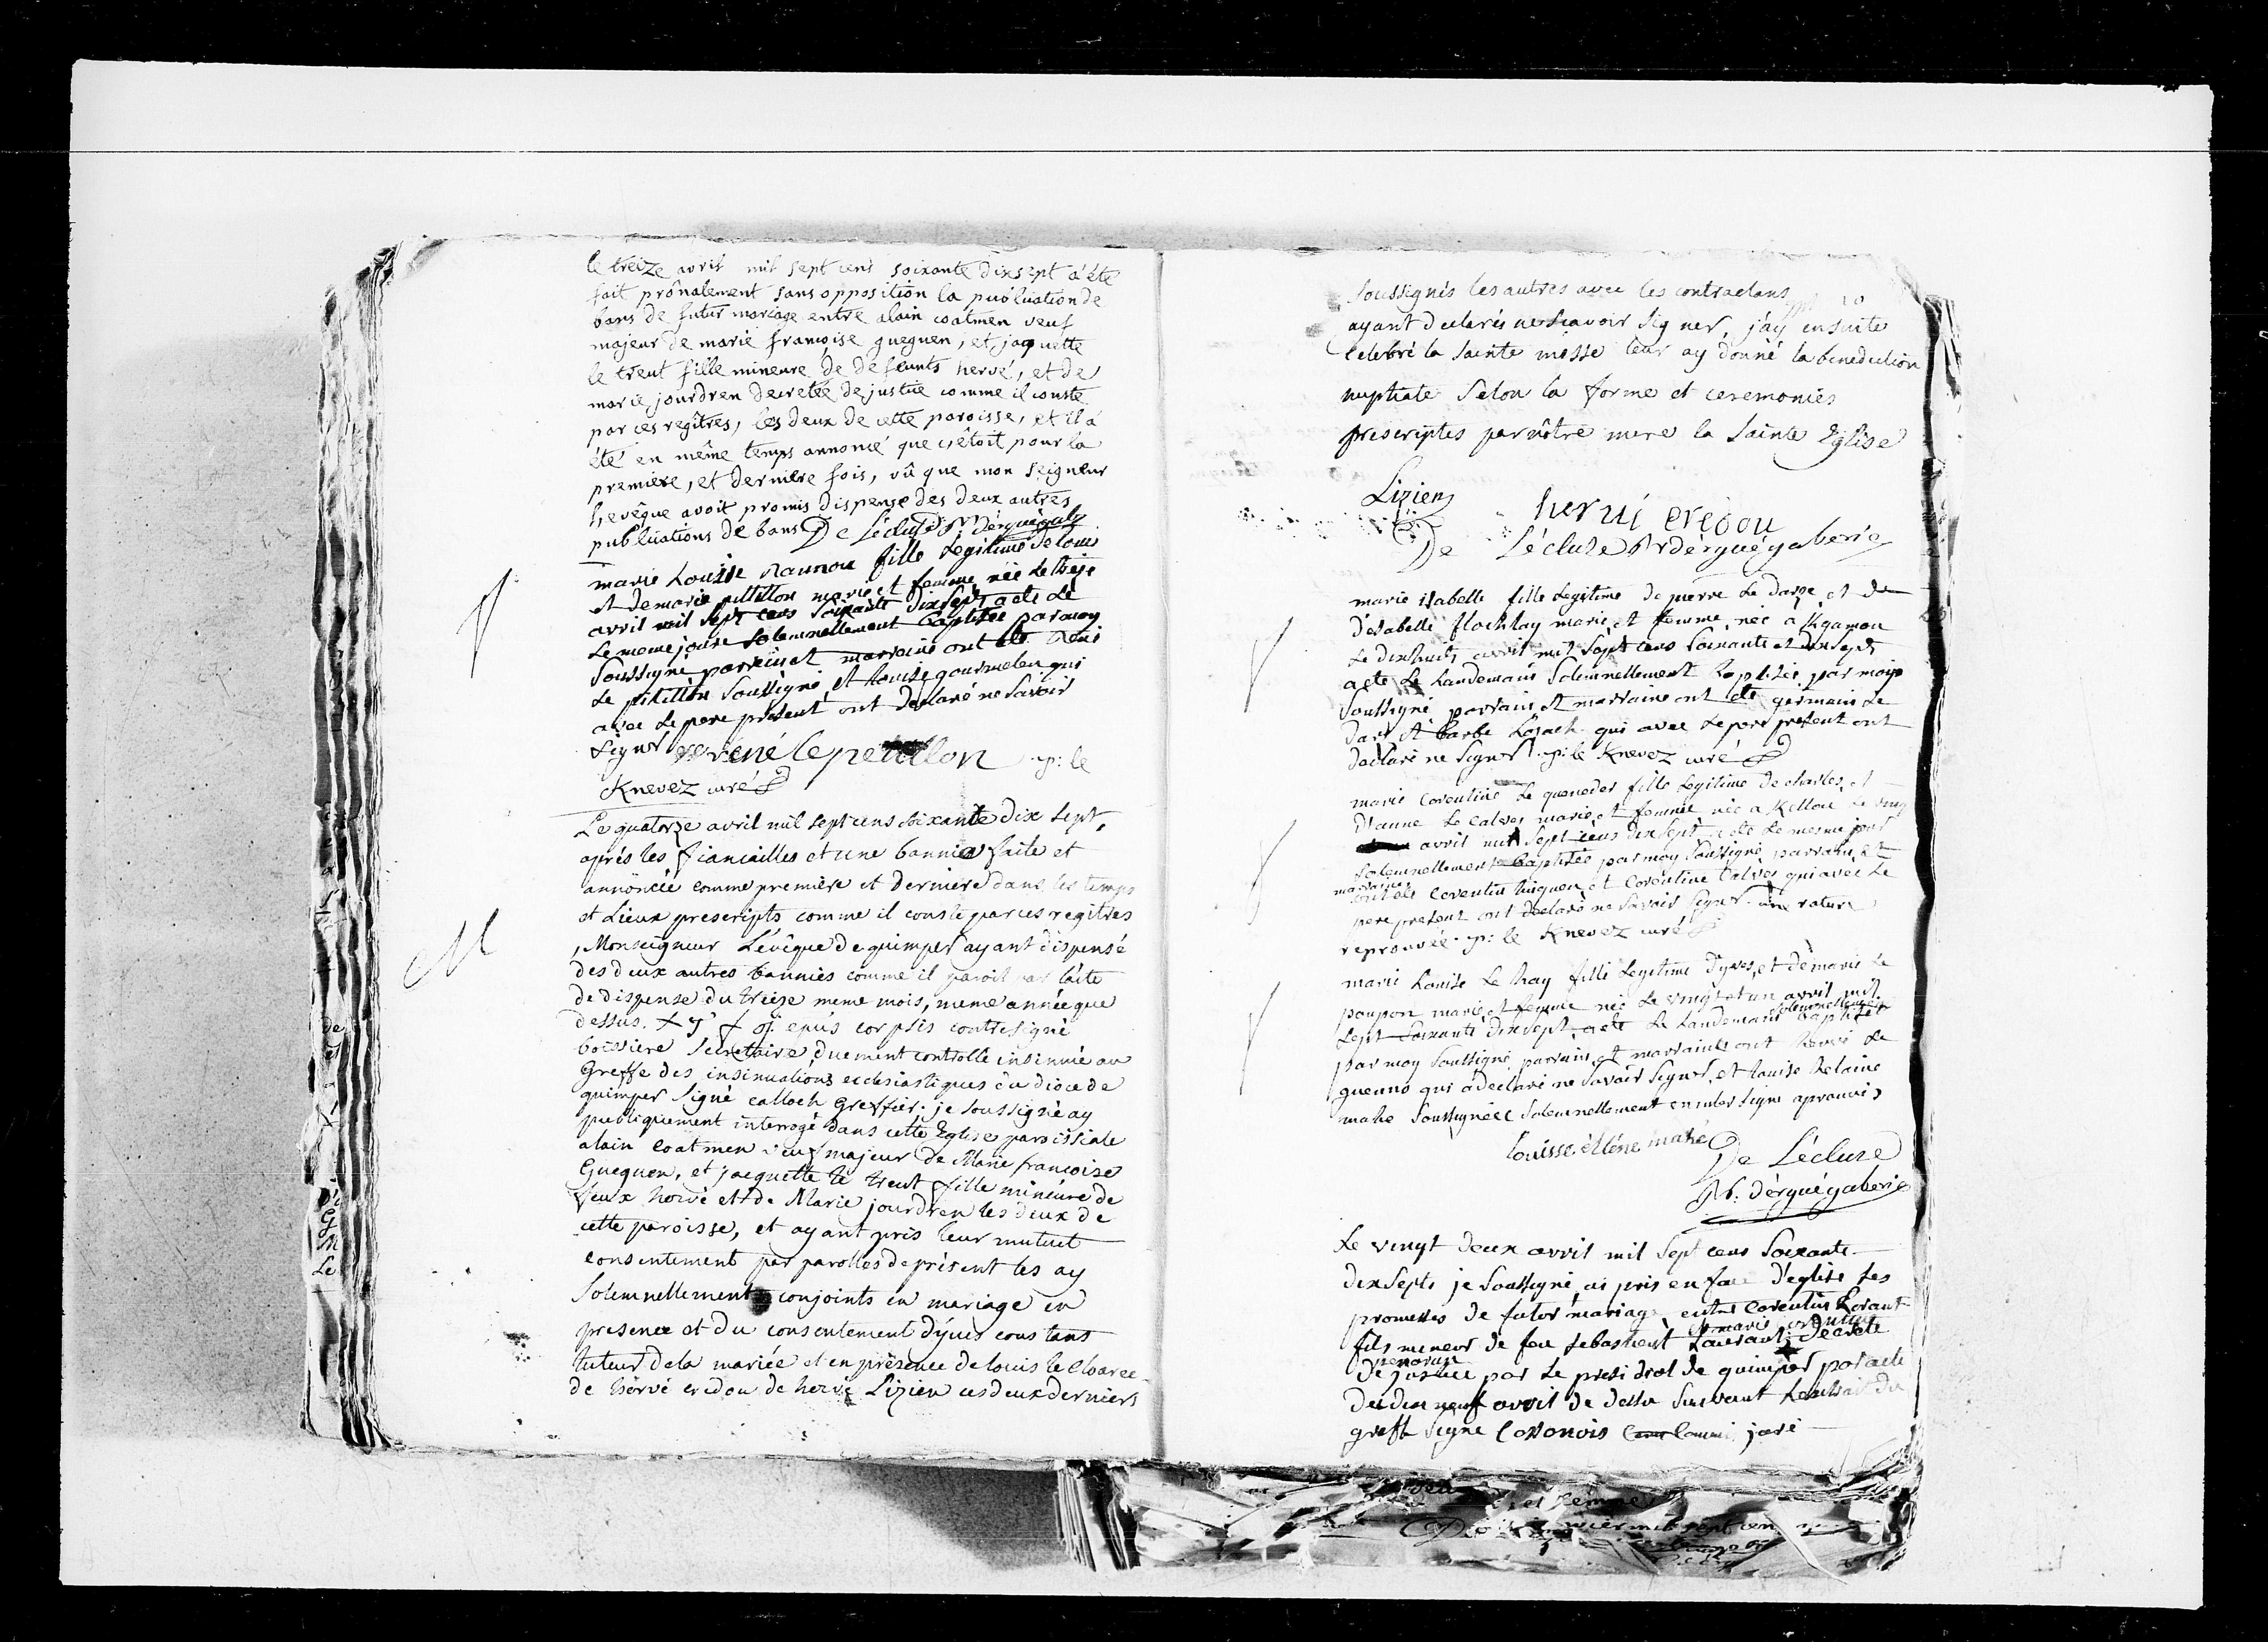 le treize avril mil sept cens soixante dixsept a été
fait prônalement sans opposition la publication de
bans de futur mariage entre alain coatmen veuf
majeur de marie françoise gueguen, et jaquette
le treut fille mineure de defunts hervé, et de
marie jourdren decretée de justice comme il conste
par ces regîtres, les deux de cette paroisse, et il a
été en même temps annoncé que c'étoit pour la
premiere, et derniere fois, vû que mon seigneur
l'evêque avoit promis dispense des deux autres
publications de bans De Lécluse Rr dérguégaberie
marie Louise Naunou fille Legitime de Louis
et de marie petillon mariés et femme née le treize
avril mil sept cens soixante dixsept a été le
le meme jour solemnellement baptisée par moy
soussigné parrain et marraine ont été René
le petillon soussigné et louise gourmelen qui
avec le pere present ont declaré ne savoir
signer rené le petillon p: le
Knevez curé
Le quatorze avril mil sept cens soixante dix sept,
après les fiancailles et une bannie faite et
annoncée comme première et derniere dans les temps
et Lieux prescripts comme il conste par ces regitres
, Monseigneur L'évêque de quimper ayant dispensé
des deux autres bannies comme il paroit par l'acte
de dispense du treize meme mois, meme année que
dessus. + T f j. epús corpsis contresigné
boissiere secretaire, duement controllé insinuée au
Greffe des insinuations ecclesiastiques du diocese de
quimper signé calloch Greffier: je soussigné ay
publiquement interrogé dans cette Eglise paroissiale
alain coatmen veuf majeur de Marie francoise
Gueguen, et jacquette le treut fille mineure de
feux hervé et de Marie jourdren les deux de
cette paroisse, et ayant pris leur mutuel
consentement par parolles de présent les ay
solemnellement conjoints en mariage en
presence et du consentement d'yves coustans
tuteur de la mariée et en présence de louis le Cloarec
de hervé credou de hervé Lizien ces deux derniers
M
soussignés les autres avec les contractans
ayant declarés ne sçavoir signer, j'ay ensuite
celebré la sainte messe leur ay donné la benediction
nuptiale selon la forme et ceremonies
prescriptes par nôtre mere la sainte Eglise
Lizien
hervé credou
De Lécluse Rr dérguégaberie
marie isabelle fille legitime de pierre Le Darse et de
d'esabelle flochlay mariés et femme, née à Kgamen
le dixhuit avril mil sept cens soixante et dixsept
a été le landemain solemnellement baptisée par moy
soussigné parrain et marraine ont été germain le
Dars et barbe Losach qui avec le pere present ont
declaré ne signer. p: le Knevez curé
marie Corentine Le queneder fille legitime de charles, et
d'anne Le Calvez mariés et femme née a Kellou le vingt
avril mil sept cens dixsept a été le mesme jour
solemnellement baptisée par moy soussigné parrain, et
marraine ont été corentin huguen, et Corentine Calvez qui avec le
pere present ont declaré ne savoir signer. une rature
reprouvée. p: le Knevez curé
marie Louise Le hay fille legitime d'yves, et de marie le
poupon mariés et femme née le vingt et un avril mil
sept soixante dixsept, a été le landemain solemnellement baptisée
par moy soussigné parrain, et marraine ont hervé le
guenno qui a declaré ne savoir signer, et louise helaine
mahe soussignée (solemnellement en interligne aprouvé)
louisse ellene mahé De Lécluse
Rr. dérguégaberie
Le vingt deux avril mil sept cens soixante
dixsepts je soussigné ai pris en face d'eglise les
promesses de futur mariage entre Corentin Lorant
fils mineur de feu sebastient Laurant, et marie decrete
de justice par le presidial de quimper par acte
du dix neuf avril de dessu suivant l'extrait du
greffe signé Cossonois commi juré